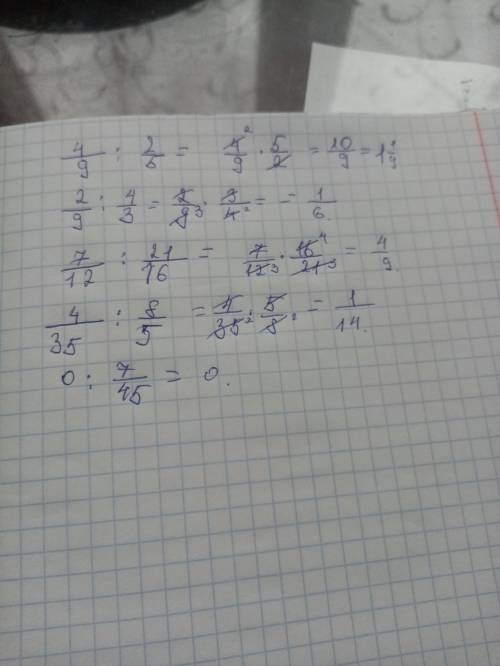 4/9 : 2/5 = 4²/9 · 5/2 = 10/9 = 1 1/9
2/9 : 4/3 = 2/9³ · 3/4² = - 1/6
7/12 : 21/16 = 7/12³ · 16⁴/21³ = 4/9
4/35 : 8/5 = 4/35² · 5/8² = 1/14.
0 : 7/45 = 0.